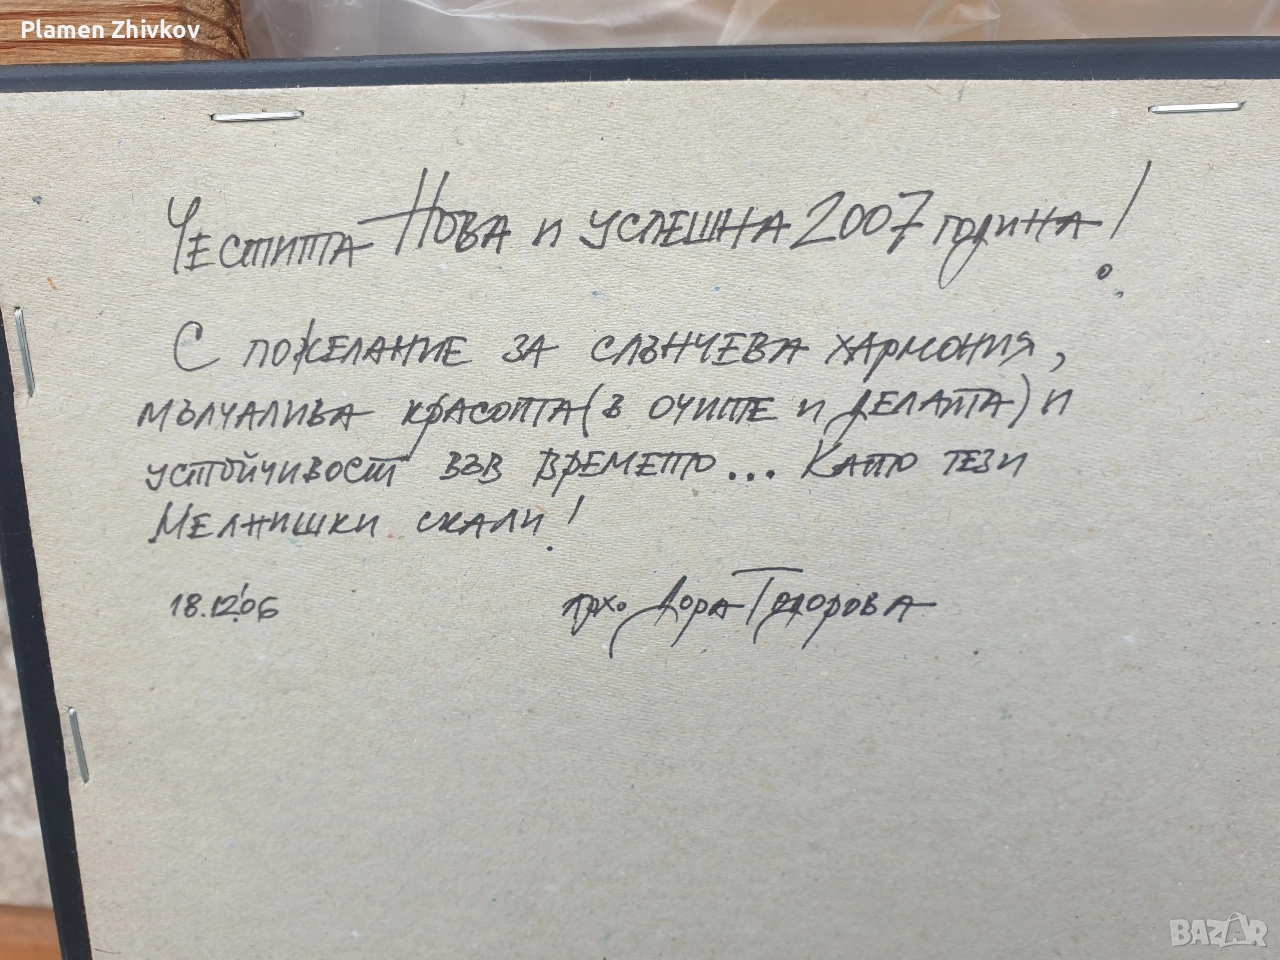 Plamen Zhivkov
Честита Нова и успешна 2007 година!
С пожелание за слънчева хармония,
мълчалива красота (в очите и делата) и
устойчивост във времето... Като тези
Мелнишки скали!
18.12.06 арх. Дора Тодорова
BAZAR